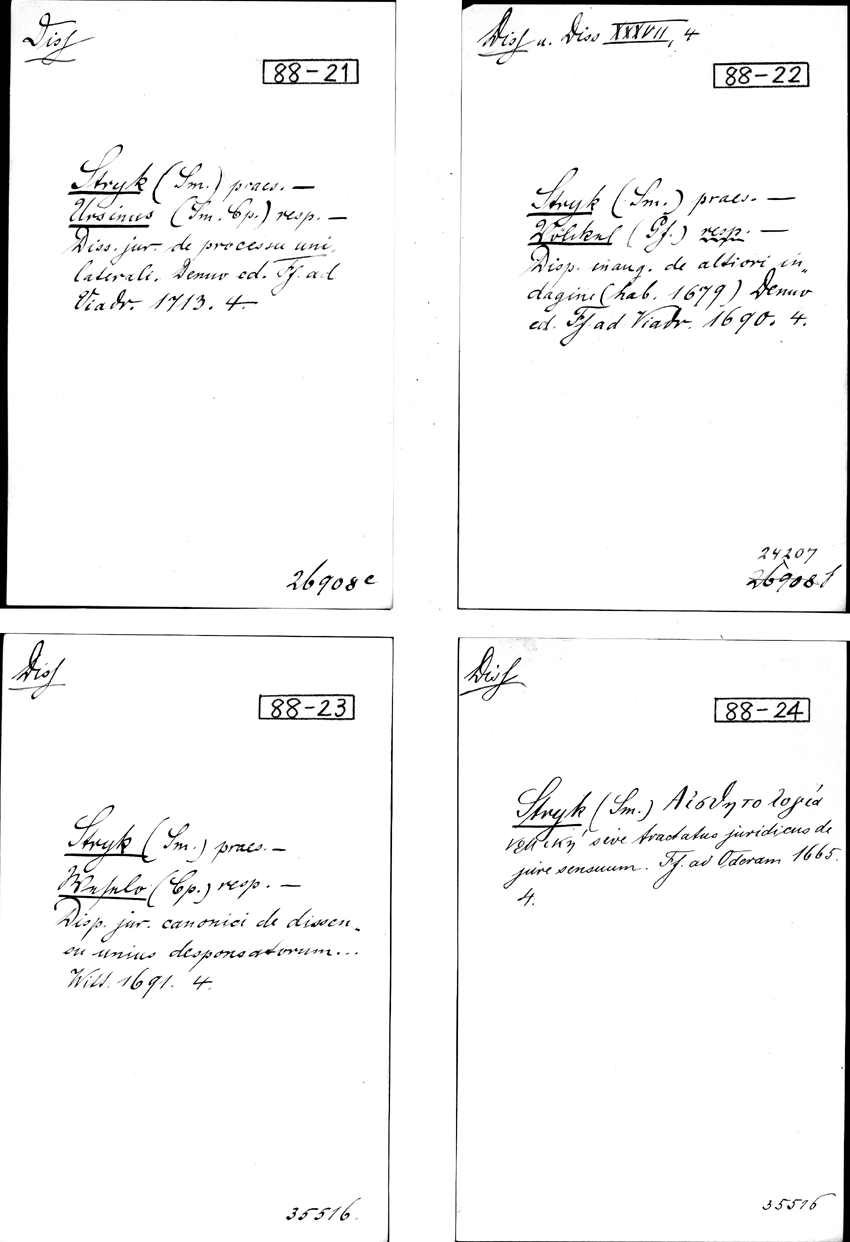 Diss
88-21
Stryk (Sm.) praes. —
Ursinus (Sm. Cp.) resp. —
Diss. jur. de processu uni-
laterali. Denuo ed. Ff. ad
Viadr. 1713. 4.
26908e
Diss u. Diss XXXVII, 4
88-22
Stryk (Sm.) praes. —
Völckel (Gf.) resp. —
Disp. inaug. de altiori in-
dagine (hab. 1679) Denuo
ed. Ff. ad Viadr. 1690. 4.
24207
26908f
Diss
88-23
Stryk (Sm.) praes. —
(Cp.) resp. —
Disp. jur. canonici de dissen-
su unius desponsatorum...
1691. 4.
35516.
Diss
88-24
Stryk (Sm.) Αἰσθητολογία
sive tractatus juridicus de
jure sensuum. Ff. ad Oderam 1665.
4.
35516